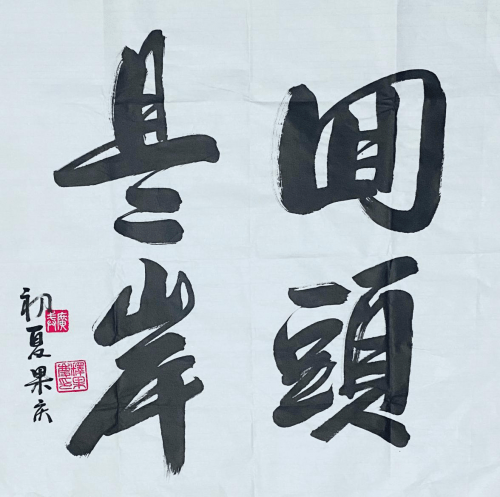 回頭
是岸
初夏果庆